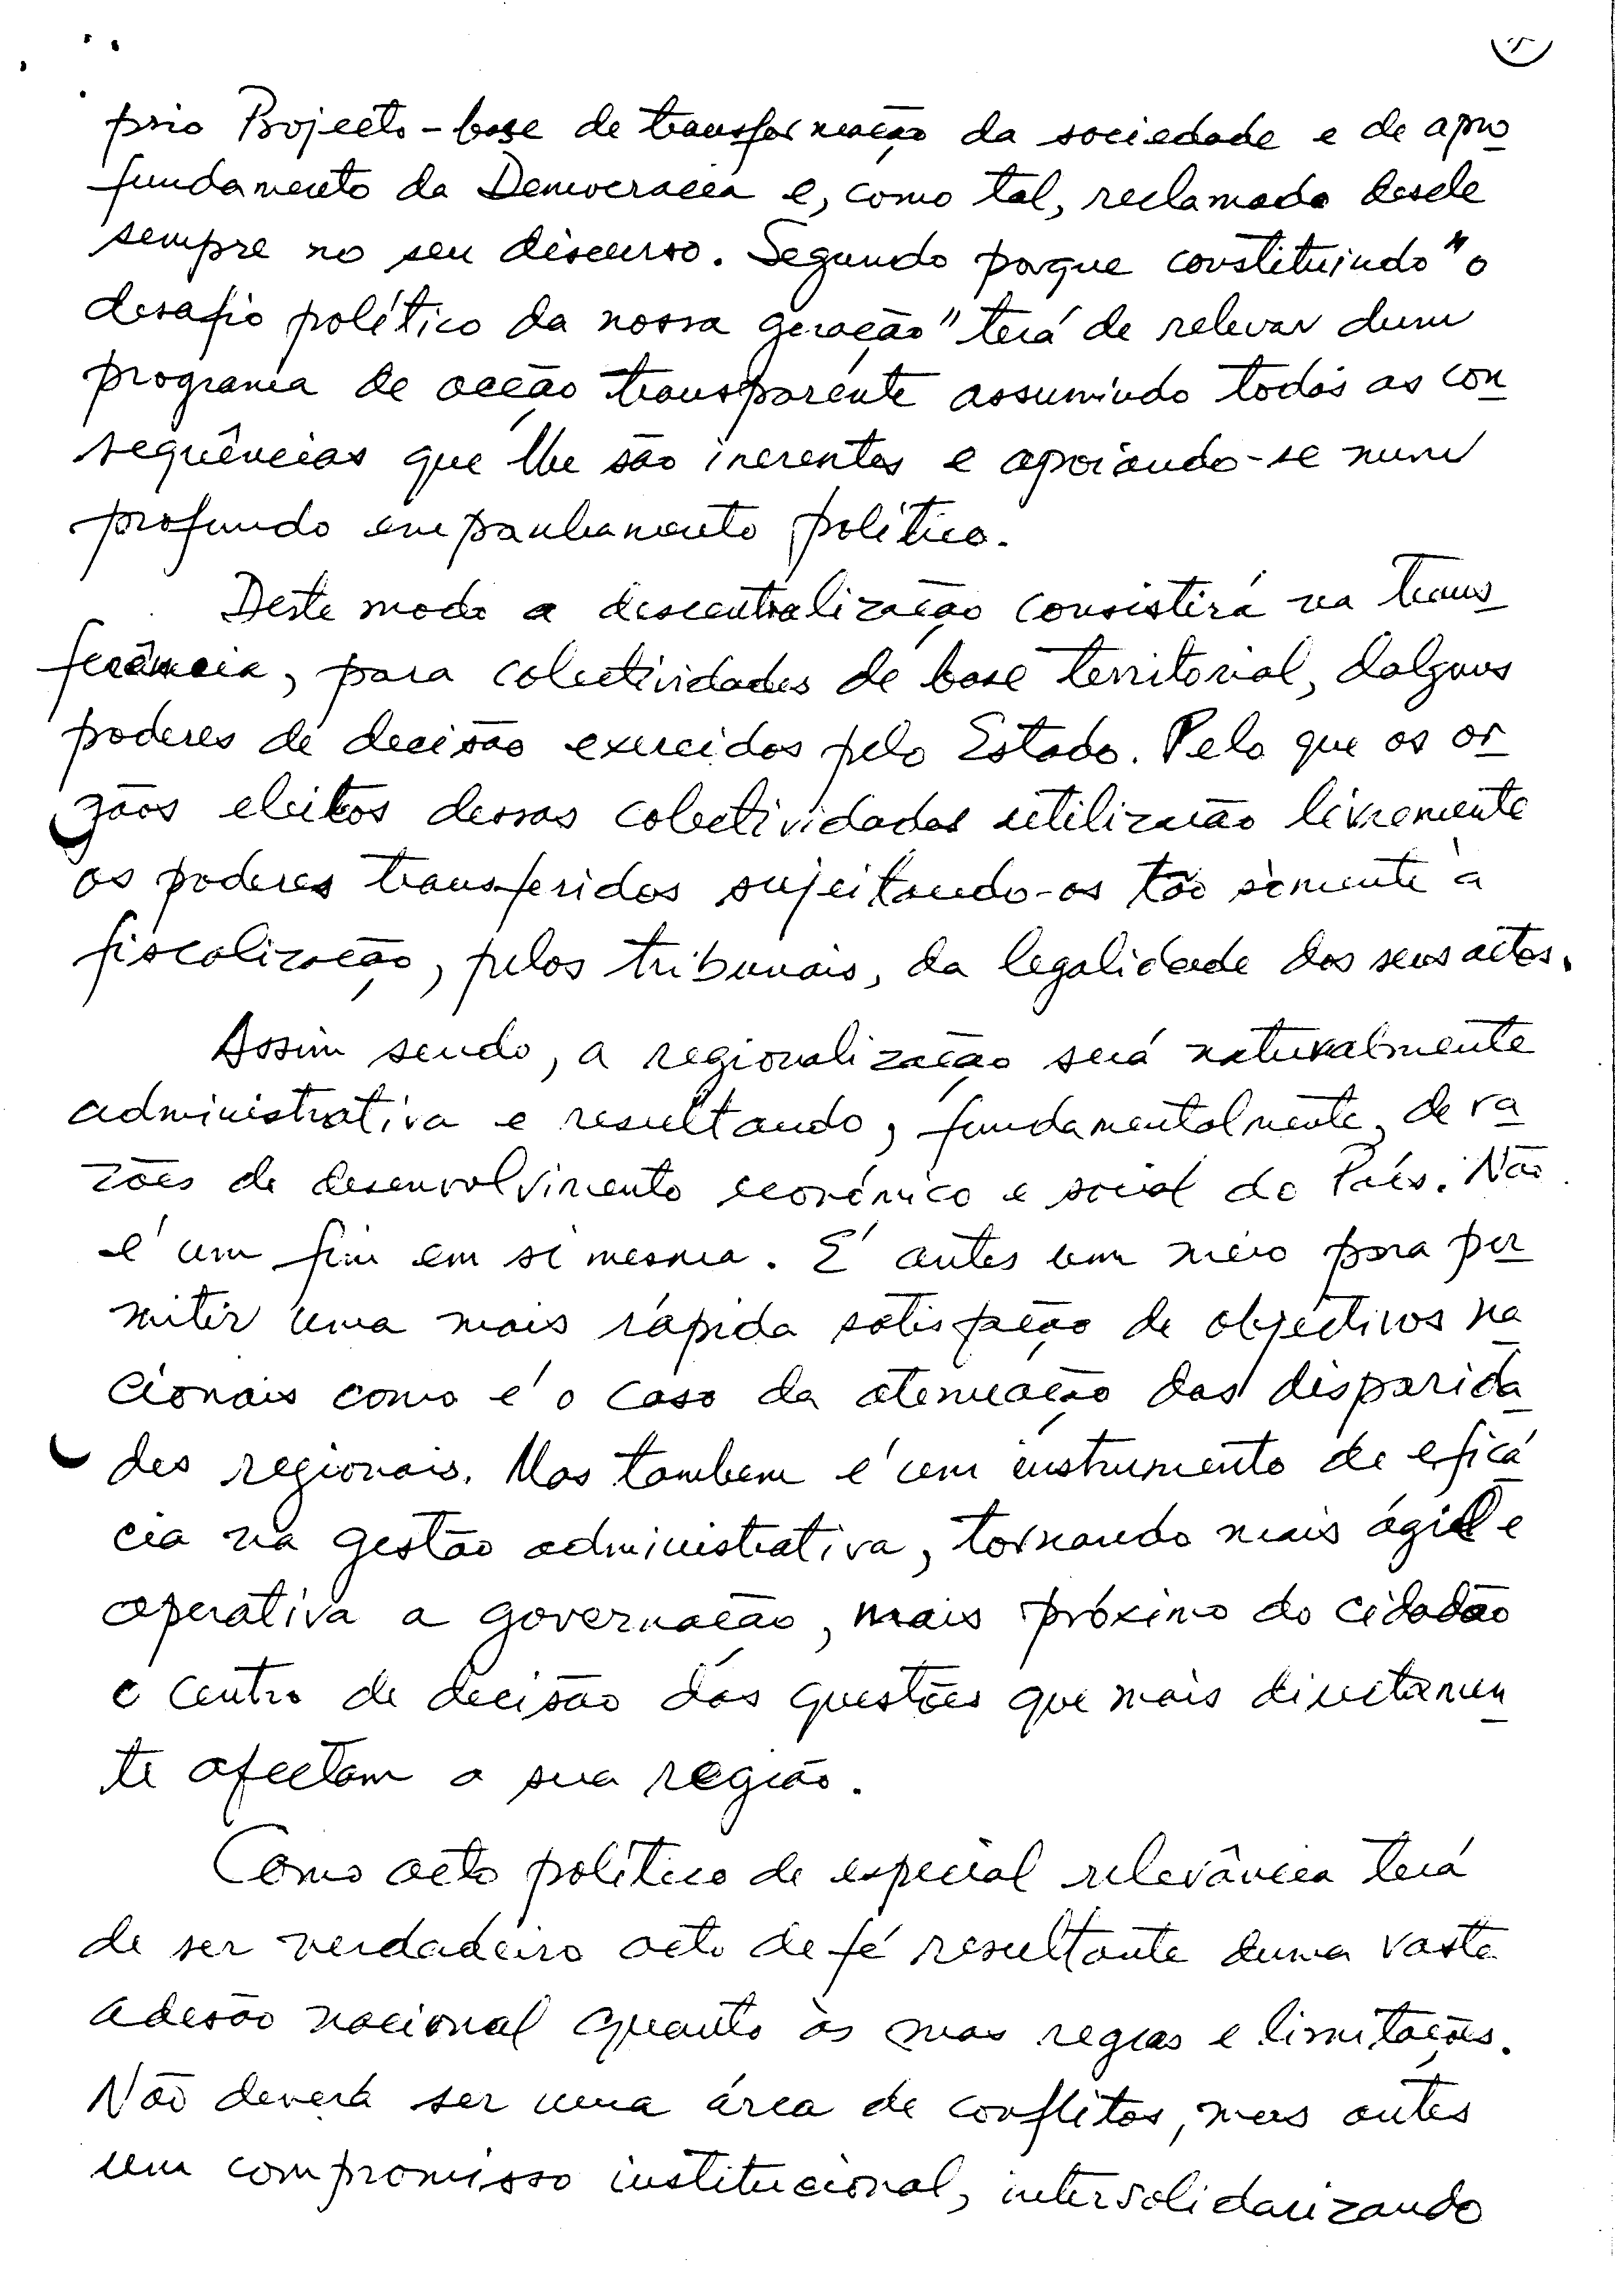 prio Projecto-base de transformação da sociedade e de apro
fundamento da Democracia e, como tal, reclamado desde
sempre no seu discurso. Segundo porque constituindo "o
desafio político da nossa geração" terá de relevar dum
programa de acção transparente assumindo todas as con
sequências que lhe são inerentes e apoiando-se num
profundo empanhamento político.
Deste modo a descentralização consistirá na trans
ferência, para colectividades de base territorial, dalguns
poderes de decisão exercidos pelo Estado. Pelo que os or
gãos eleitos dessas colectividades utilizarão livremente
os poderes transferidos sujeitando-os tão sòmente à
fiscalização, pelos tribunais, da legalidade dos seus actos.
Assim sendo, a regionalização será naturalmente
administrativa e resultando, fundamentalmente, de ra
zões de desenvolvimento económico e social do País. Não
é um fim em si mesma. É antes um meio para per
mitir uma mais rápida satisfação de objectivos na
cionais como é o caso da atenuação das disparida
des regionais. Mas tambem é um instrumento de eficá
cia na gestão administrativa, tornando mais ágil e
operativa a governação, mais próximo do cidadão
o centro de decisão das questões que mais directamen
te afectam a sua região.
Como acto político de especial relevância terá
de ser verdadeiro acto de fé resultante duma vasta
adesão nacional quanto às suas regras e limitações.
Não deverá ser uma área de conflitos, mas antes
um compromisso institucional, intersolidarizando